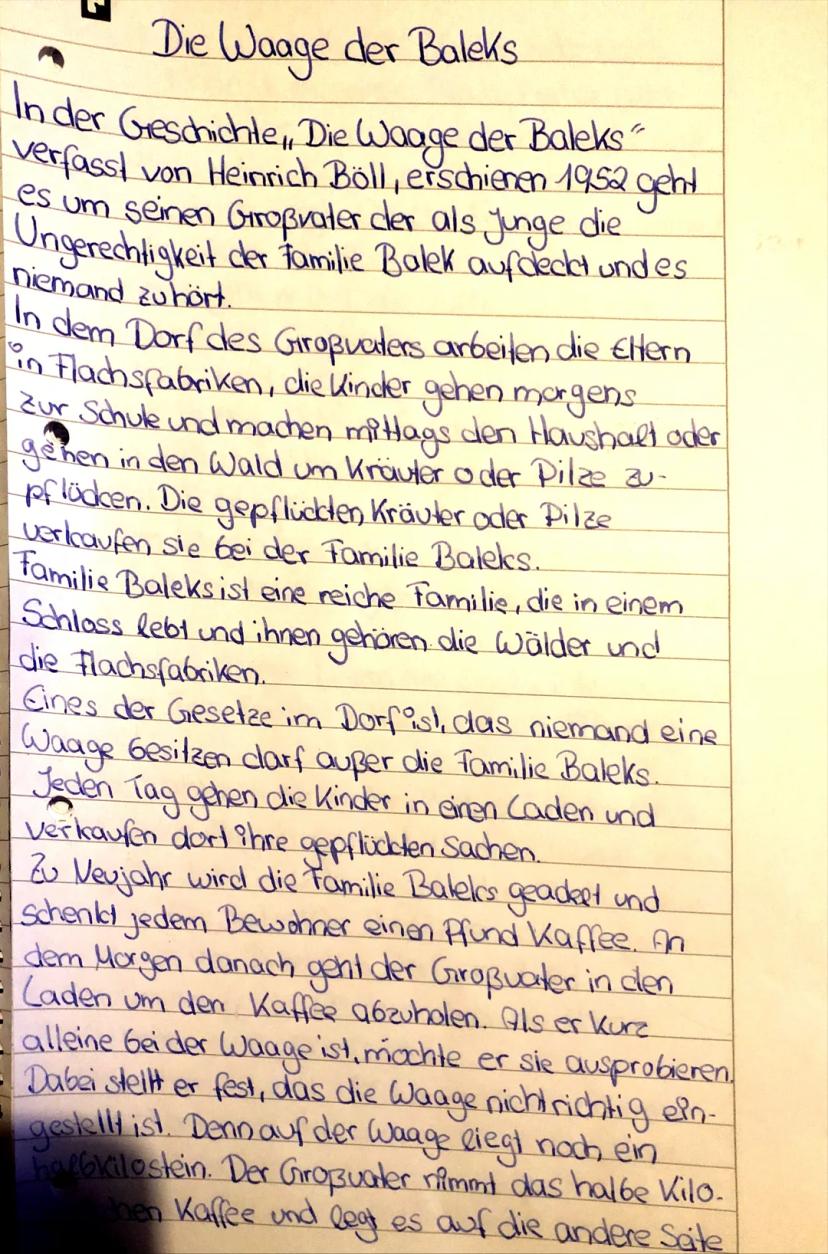 Die Waage der Baleks
In der Geschichte „Die Waage der Baleks“
verfasst von Heinrich Böll, erschienen 1952 geht
es um seinen Großvater der als Junge die
Ungerechtigkeit der Familie Balek aufdeckt und es
niemand zuhört.
In dem Dorf des Großvaters arbeiten die Eltern
in Flachsfabriken, die Kinder gehen morgens
zur Schule und machen mittags den Haushalt oder
gehen in den Wald um Kräuter oder Pilze zu-
pflücken. Die gepflückten Kräuter oder Pilze
verkaufen sie bei der Familie Baleks.
Familie Baleks ist eine reiche Familie, die in einem
Schloss lebt und ihnen gehören die Wälder und
die Flachsfabriken.
Eines der Gesetze im Dorf ist, das niemand eine
Waage besitzen darf außer die Familie Baleks.
Jeden Tag gehen die Kinder in einen Laden und
verkaufen dort ihre gepflückten Sachen.
Zu Neujahr wird die Familie Baleks geadelt und
schenkt jedem Bewohner einen Pfund Kaffee. An
dem Morgen danach geht der Großvater in den
Laden um den Kaffee abzuholen. Als er kurz
alleine bei der Waage ist, möchte er sie ausprobieren.
Dabei stellt er fest, das die Waage nicht richtig ein-
gestellt ist. Denn auf der Waage liegt noch ein
halbkilostein. Der Großvater nimmt das halbe Kilo-
Kaffee und legt es auf die andere Seite